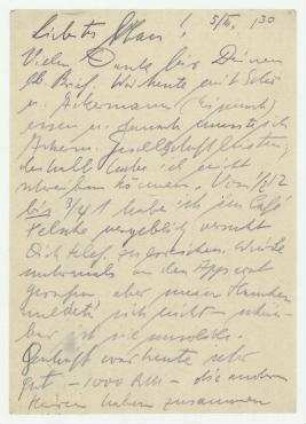 Liebster Hans! 5/II. 30
Vielen Dank für Deinen
lb. Brief. War heute mit Schö
u. Ackermann
essen u. danach musste ich
Ackerm. Gesellschaft leisten,
deshalb habe ich nicht
schreiben können. Von 1/2 12
bis 3/4 1 habe ich im Café
Felsche vergeblich versucht
Dich telef. zu sprechen. Wurde
mehrmals an den Apparat
gerufen, aber unser Hänken
meldete sich nicht, schein-
bar ist sie
Geschäft war heute sehr
gut - 1000 RM - die anderen
Herren haben zusammen